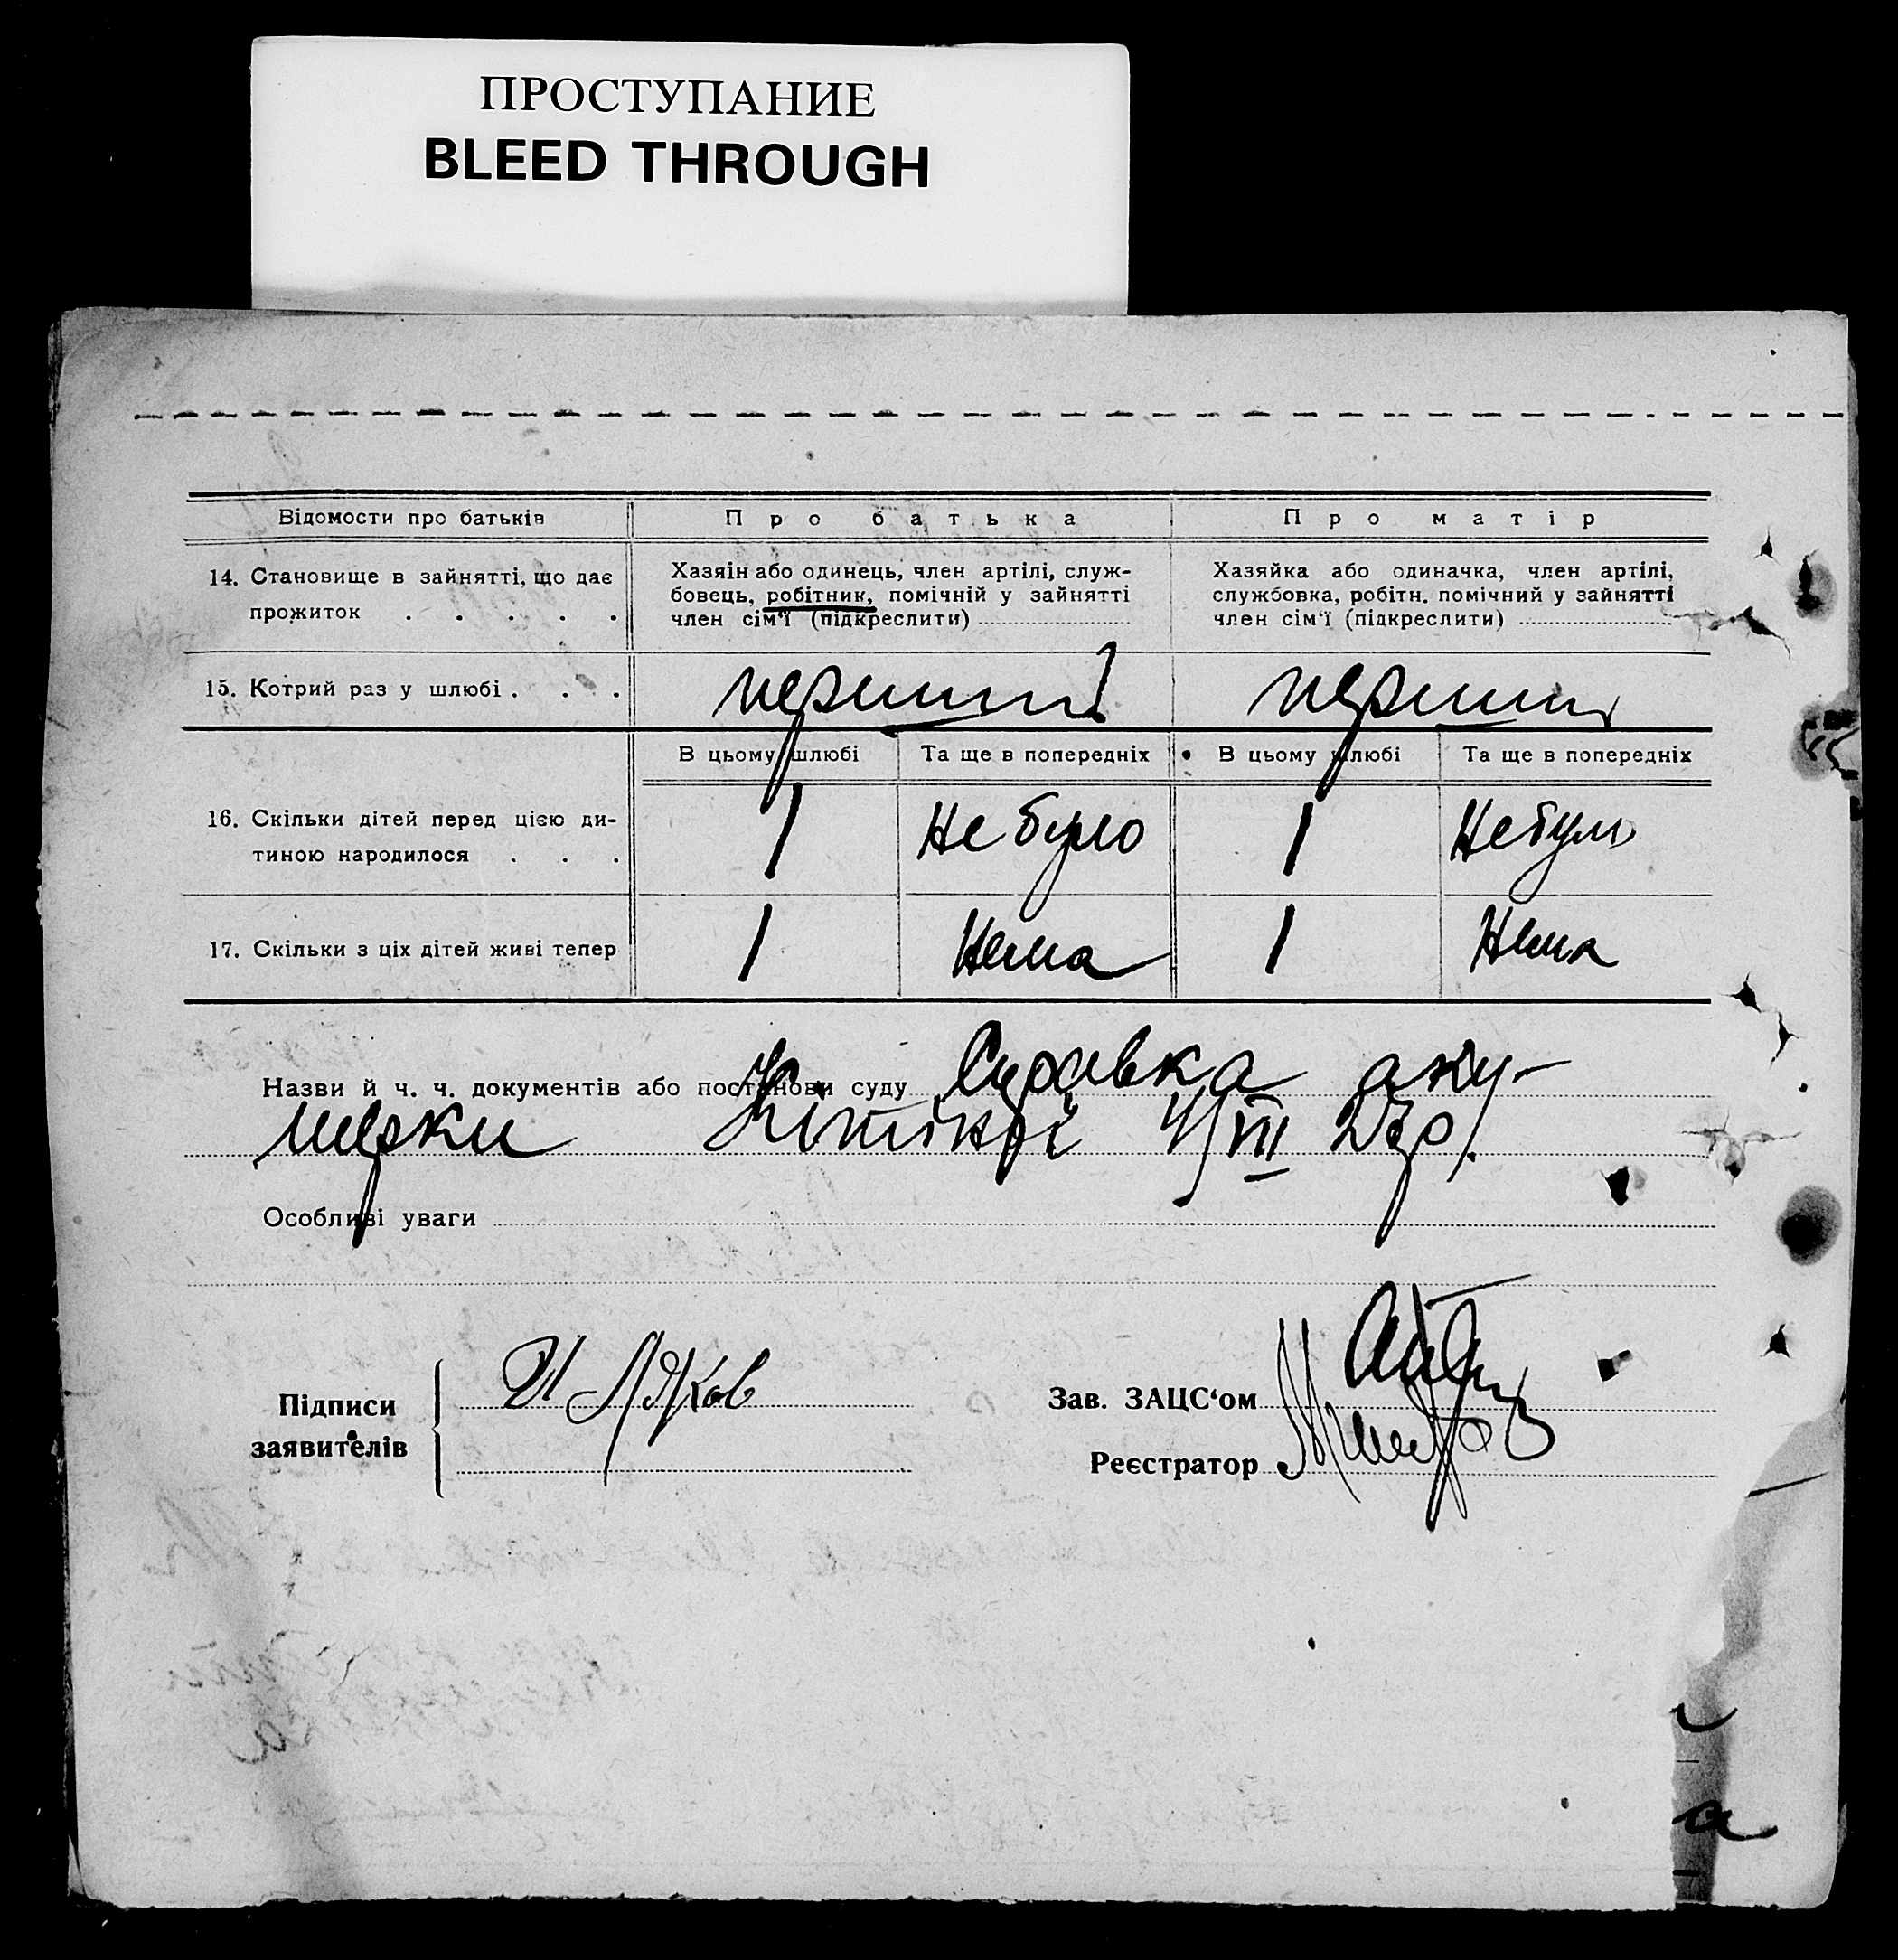 ПРОСТУПАНИЕ
BLEED THROUGH
Відомости про батьків
Про батька
Про матір
14. Становище в зайнятті, що дає
прожиток . . . . .
Хазяїн або одинець, член артілі, служ-
бовець, робітник, помічній у зайнятті
член сім'ї (підкреслити)
Хазяйка або одиначка, член артілі,
службовка, робітн. помічний у зайнятті
член сім'ї (підкреслити)
15. Котрий раз у шлюбі . . .
перший
перший
В цьому шлюбі
Та ще в попередніх
В цьому шлюбі
Та ще в попередніх
16. Скільки дітей перед цією ди-
тиною народилося . . .
1
Не було
1
Не було
17. Скільки з ціх дітей живі тепер
1
Нема
1
Нема
Назви й ч. ч. документів або постанови суду Справка аку-
шерки
Особливі уваги
Підписи
заявителів
Зав. ЗАЦС'ом
Реєстратор